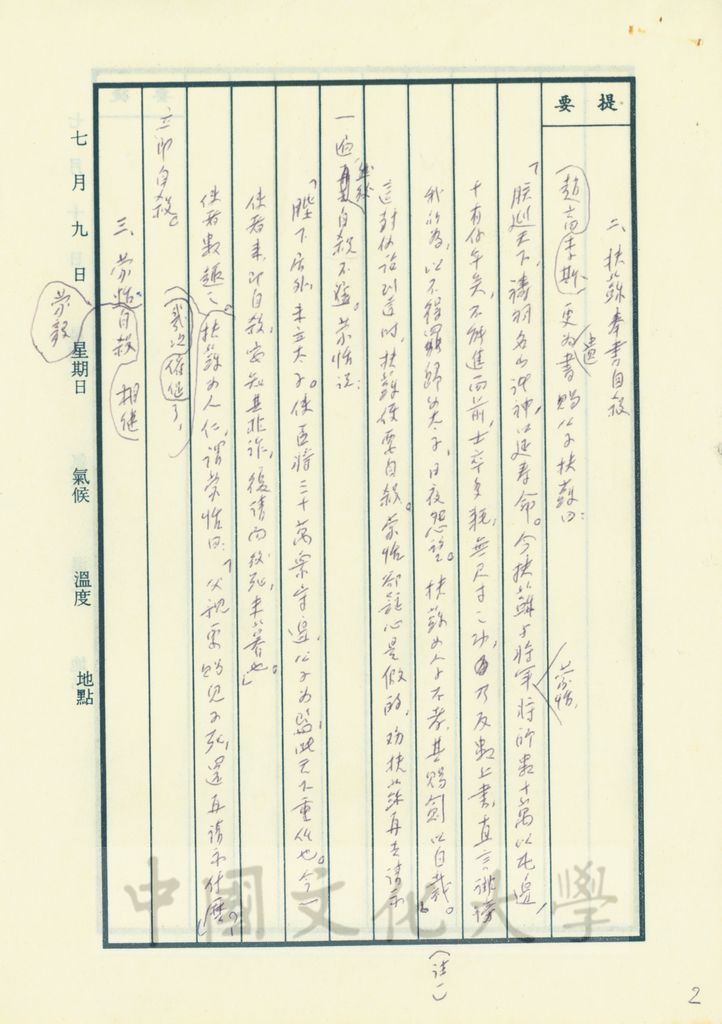 提要
二、扶蘇奉書自殺
趙高李斯更為書遺賜公子扶蘇曰：
「朕巡天下，禱祠名山諸神以延壽命。今扶蘇與將軍蒙恬，將師數十萬以屯邊，
十有餘年矣，不能進而前，士卒多耗，無尺寸之功，乃反數上書，直言誹謗
我所為，以不得罷歸為太子，日夜怨望。扶蘇為人子不孝，其賜劍以自裁。」（註一）
這封偽詔到達時，扶蘇便要自殺。蒙恬卻疑心是假的，勸扶蘇再去請示
一遍，再自殺不遲。蒙恬說：
「陛下居外，未立太子。使臣將三十萬眾守邊，公子為監，此天下重任也。今一
使者來，即自殺，安知其非詐，復請而後死，未暮也。」
使者數趣之。扶蘇為人仁，謂蒙恬曰：「父親要賜兒子死，還再請示什麼？」
（幾次催促了，
立即自殺。
三、蒙恬自殺相繼
蒙毅
七月十九日 星期日 氣候 溫度 地點
中國文化大學
2